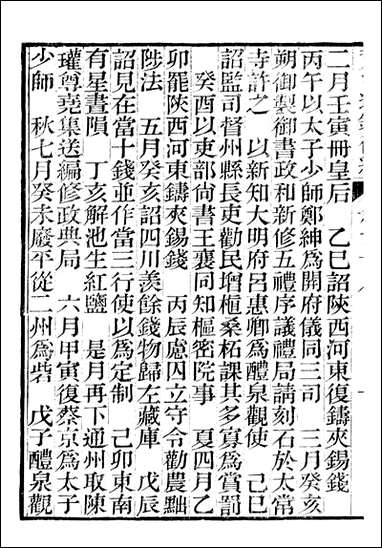 二月壬寅冊皇后　乙巳詔陝西河東復鑄夾錫錢
丙午以太子少師鄭紳為開府儀同三司　三月癸亥
朔御製御書政和新修五禮序議禮局請刻石於太常
寺許之　以新知大明府呂惠卿為醴泉觀使　己巳
詔監司督州縣長吏勸民增植桑柘課其多寡為賞罰
癸酉以吏部尚書王襄同知樞密院事　夏四月乙
卯罷陝西河東鑄夾錫錢　丙辰慮囚立守令勸農黜
陟法　五月癸亥詔四川羨餘錢物歸左藏庫　戊辰
詔見在當十錢並作當三行使以為定制　己卯東南
有星晝隕　丁亥解池生紅鹽　是月再下通州取陳
瓘尊堯集送編修政典局　六月甲寅復蔡京為太子
少師　秋七月癸未廢平從二州為砦　戊子醴泉觀